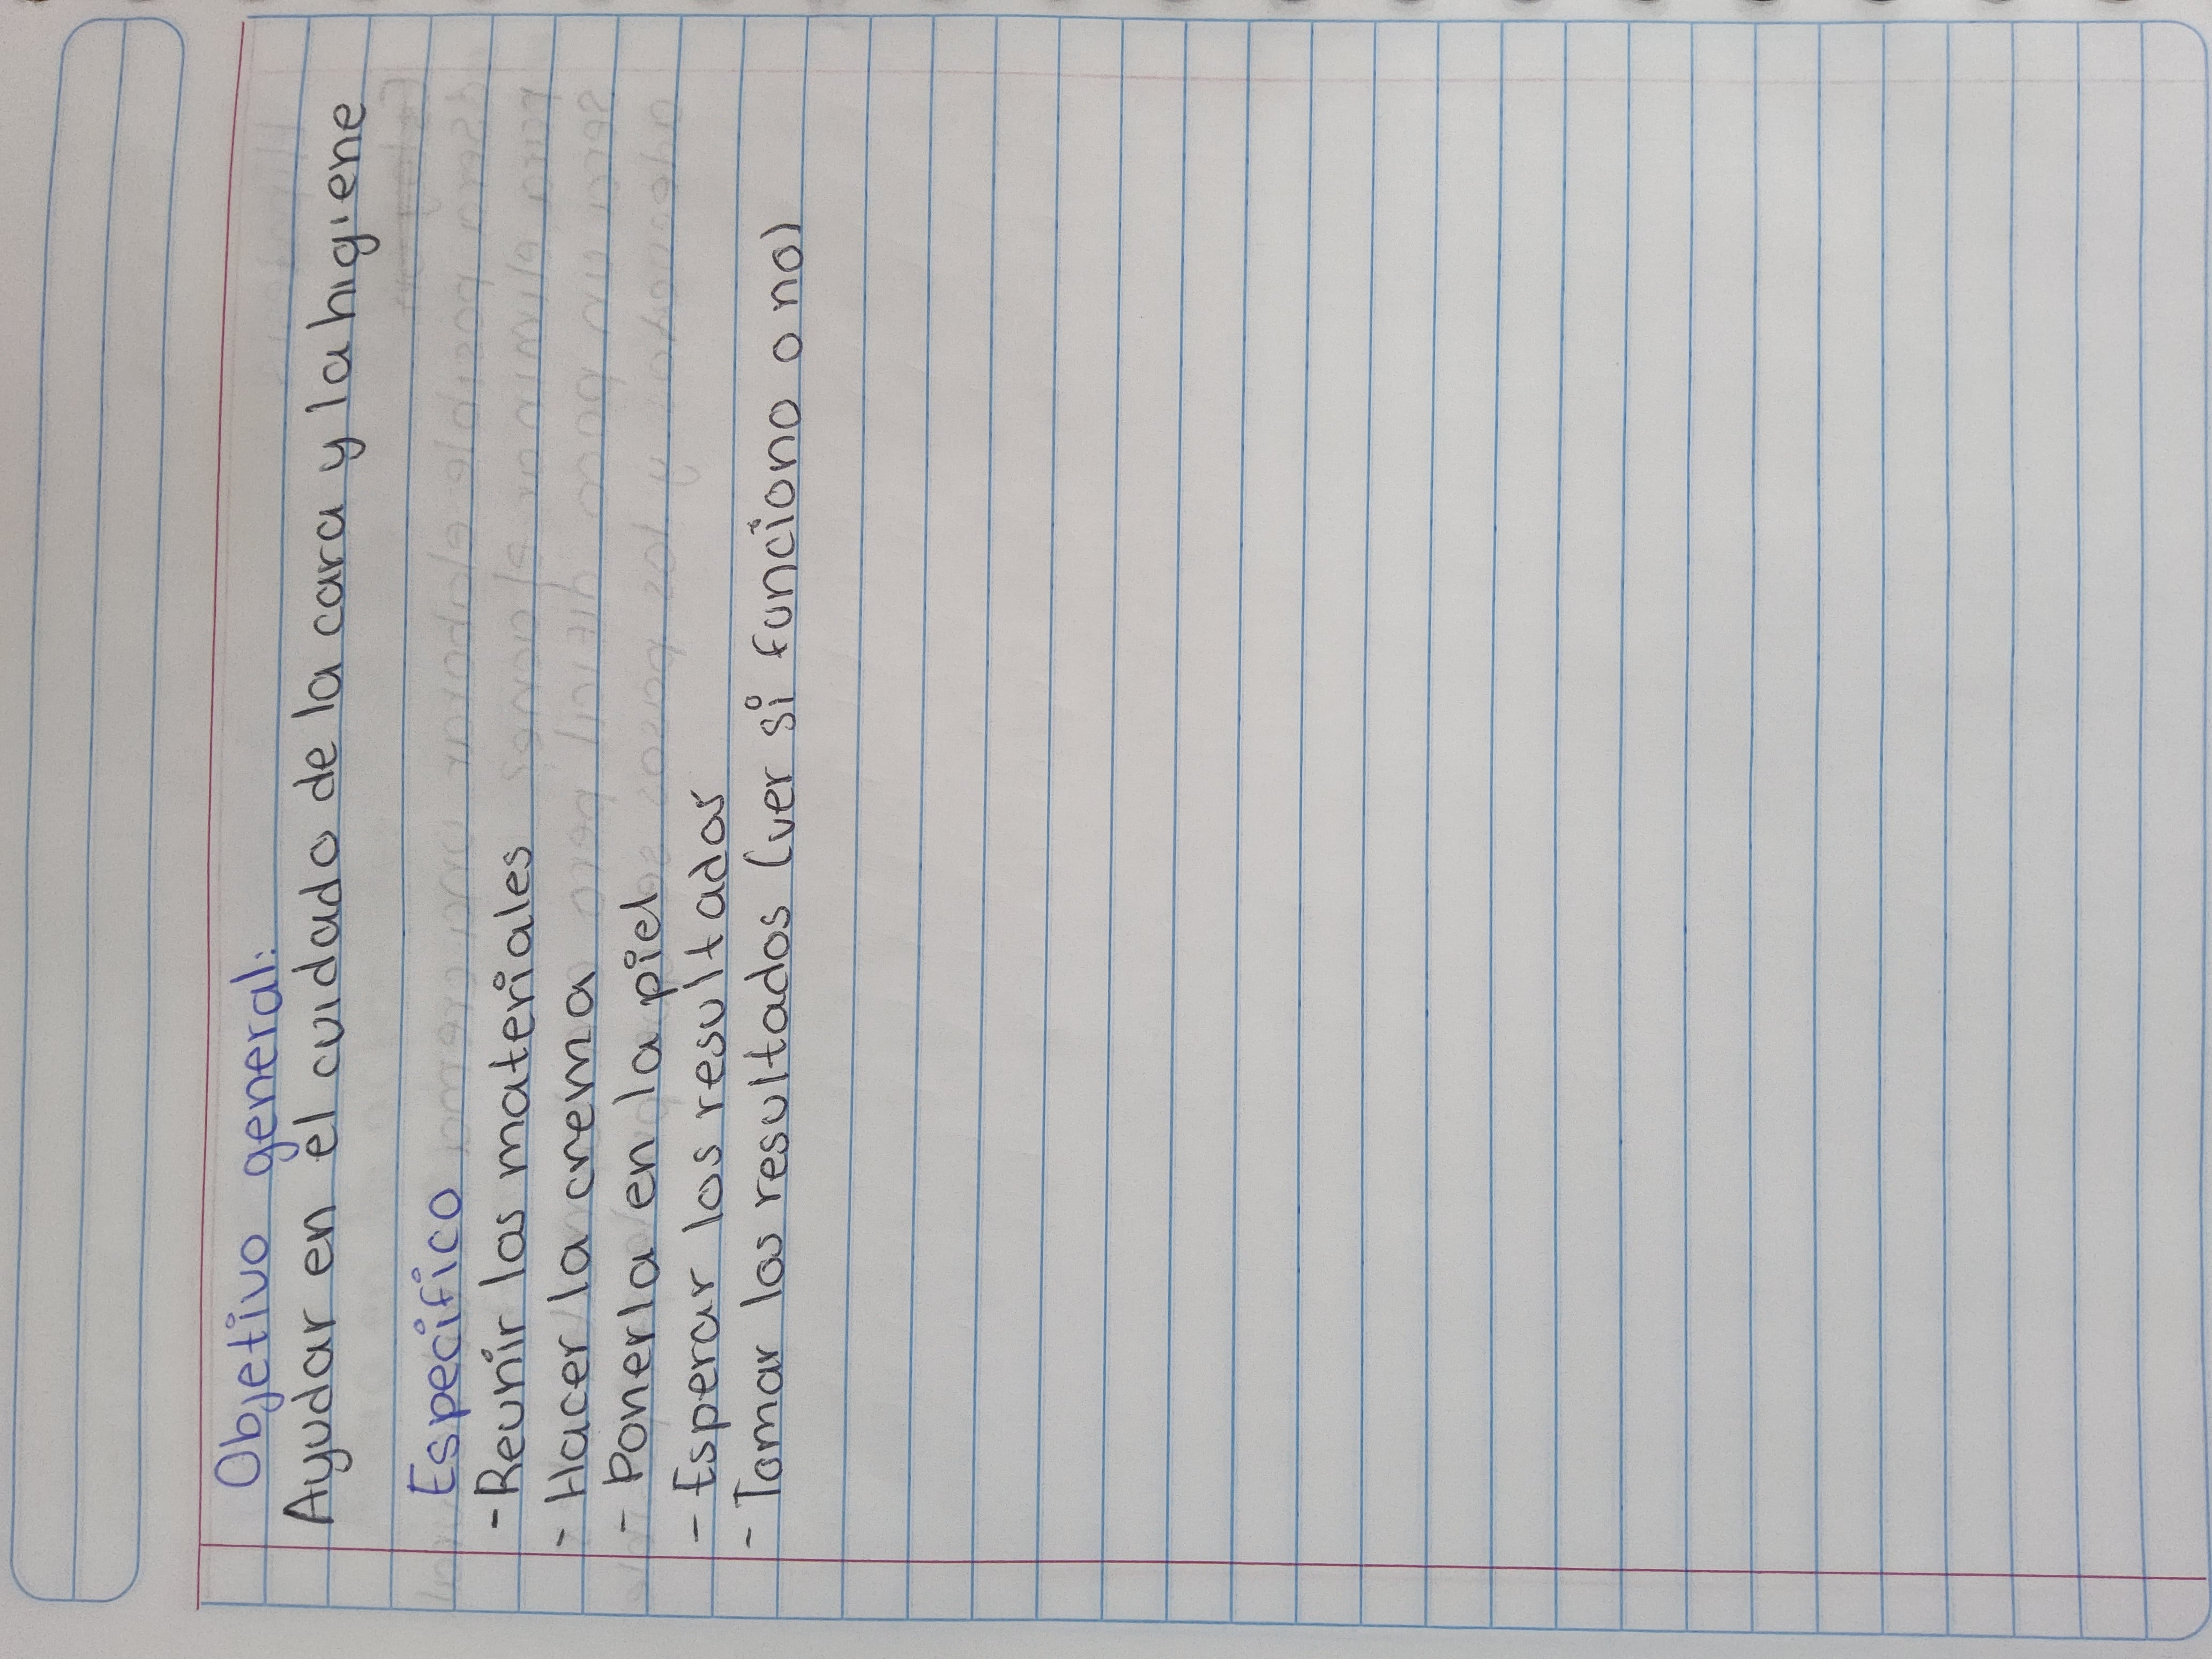 Objetivo general:
Ayudar en el cuidado de la cara y la higiene
Especifico
- Reunir los materiales
- Hacer la crema
- Ponerla en la piel
- Esperar los resultados
- Tomar los resultados (ver si funciono o no)